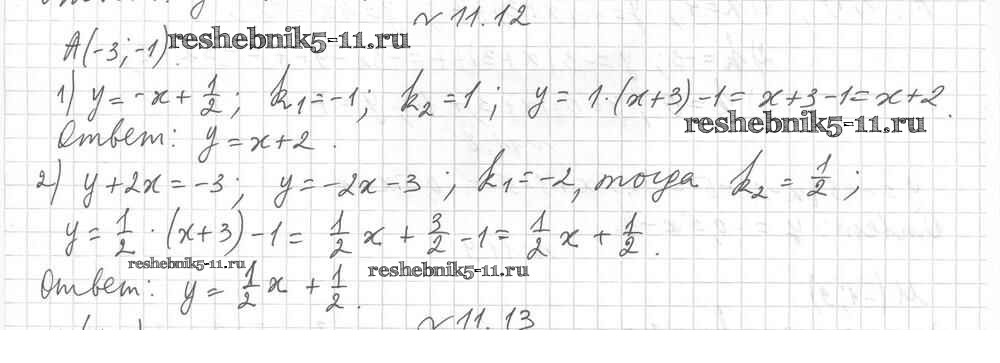 № 11.12
A(-3; -1). reshebnik5-11.ru
1) y = -x + 1/2; k₁ = -1; k₂ = 1; y = 1·(x+3) - 1 = x + 3 - 1 = x + 2.
reshebnik5-11.ru
Ответ: y = x + 2.
2) y + 2x = -3; y = -2x - 3; k₁ = -2, тогда k₂ = 1/2;
y = 1/2 · (x+3) - 1 = 1/2 x + 3/2 - 1 = 1/2 x + 1/2.
reshebnik5-11.ru reshebnik5-11.ru
Ответ: y = 1/2 x + 1/2.
№ 11.13